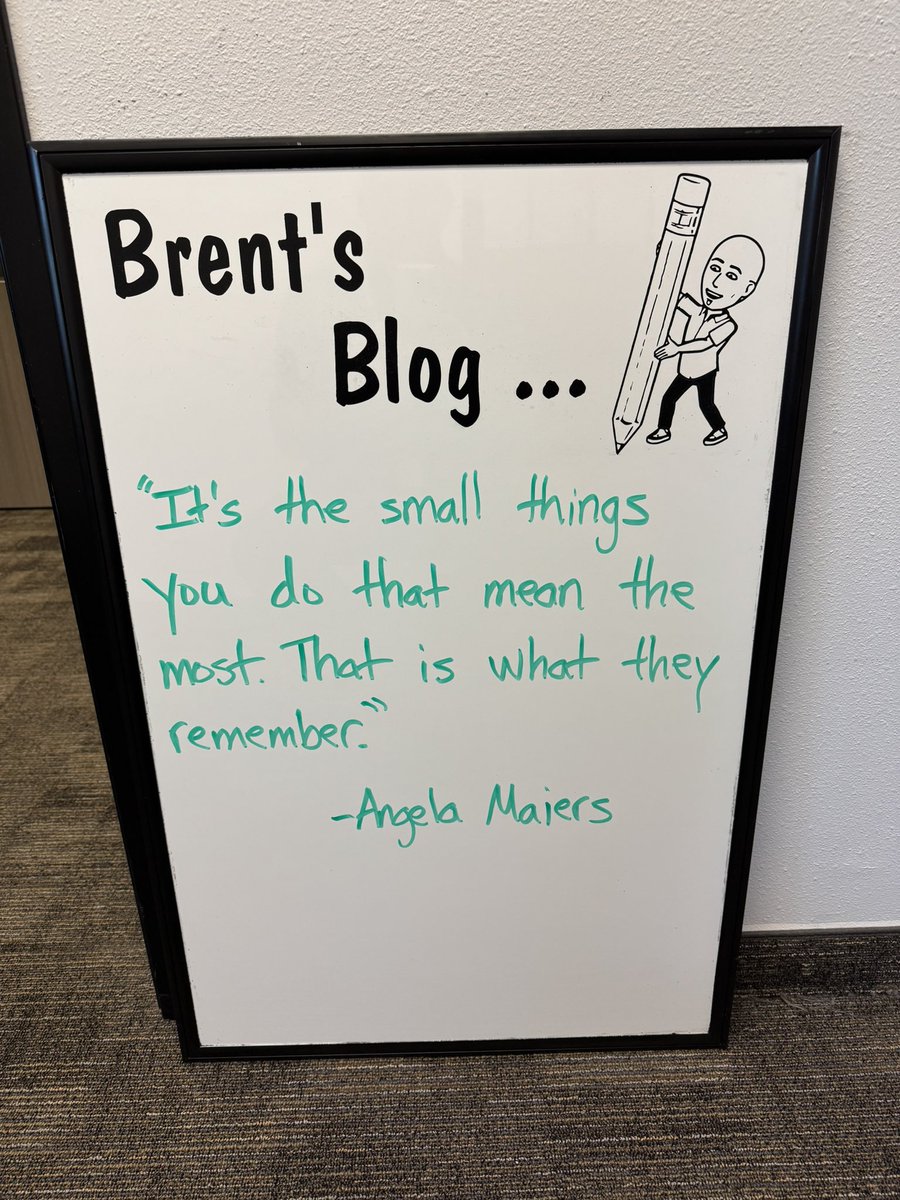 Brent's
Blog ...
"It's the small things
you do that mean the
most. That is what they
remember."
-Angela Maiers